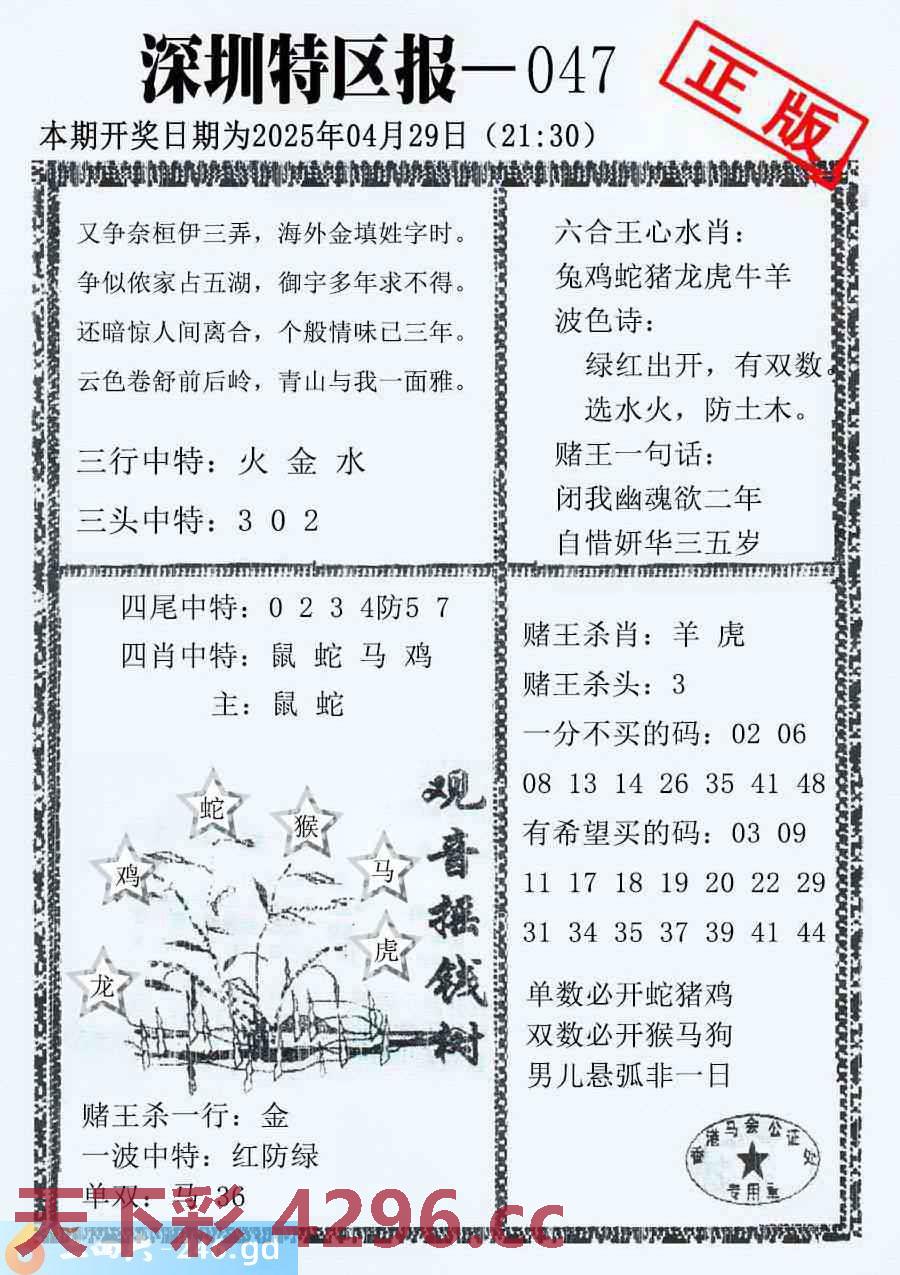 深圳特区报—047
正版
本期开奖日期为2025年04月29日（21:30）
又争奈桓伊三弄，海外金填姓字时。
争似侬家占五湖，御字多年求不得。
还暗惊人间离合，个般情味已三年。
云色卷舒前后岭，青山与我一面雅。
三行中特：火 金 水
三头中特：3 0 2
六合王心水肖：
兔鸡蛇猪龙虎牛羊
波色诗：
绿红出开，有双数。
选水火，防土木。
赌王一句话：
闭我幽魂欲二年
自惜妍华三五岁
四尾中特：0 2 3 4防5 7
四肖中特：鼠 蛇 马 鸡
主：鼠 蛇
观音摇钱树
蛇
猴
鸡
马
虎
龙
赌王杀一行：金
一波中特：红防绿
单双：马 36
赌王杀肖：羊 虎
赌王杀头：3
一分不买的码：02 06
08 13 14 26 35 41 48
有希望买的码：03 09
11 17 18 19 20 22 29
31 34 35 37 39 41 44
单数必开蛇猪鸡
双数必开猴马狗
男儿悬弧非一日
香港马会公证处
专用章
天下彩 4296.cc